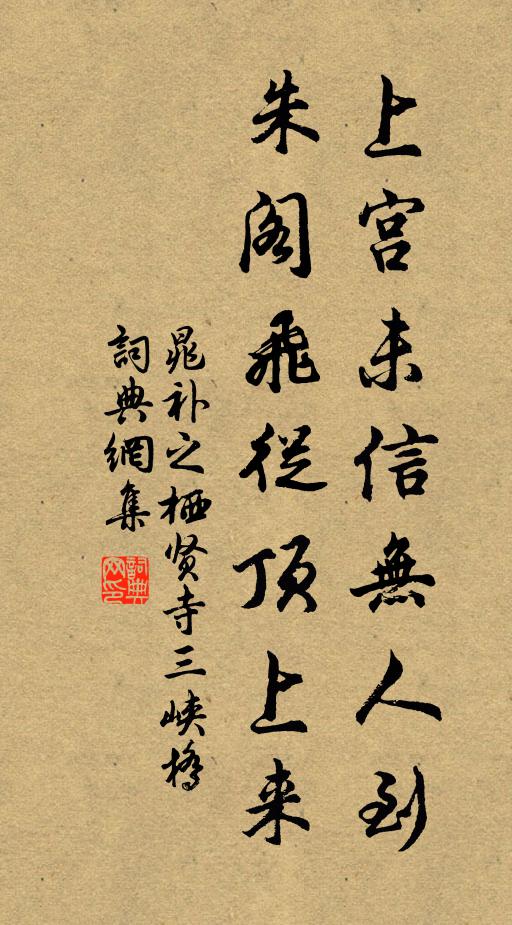 上宫未信無人到
朱阁飛從顶上来
晁补之栖贤寺三峡橋
詞典網集
詞典网印